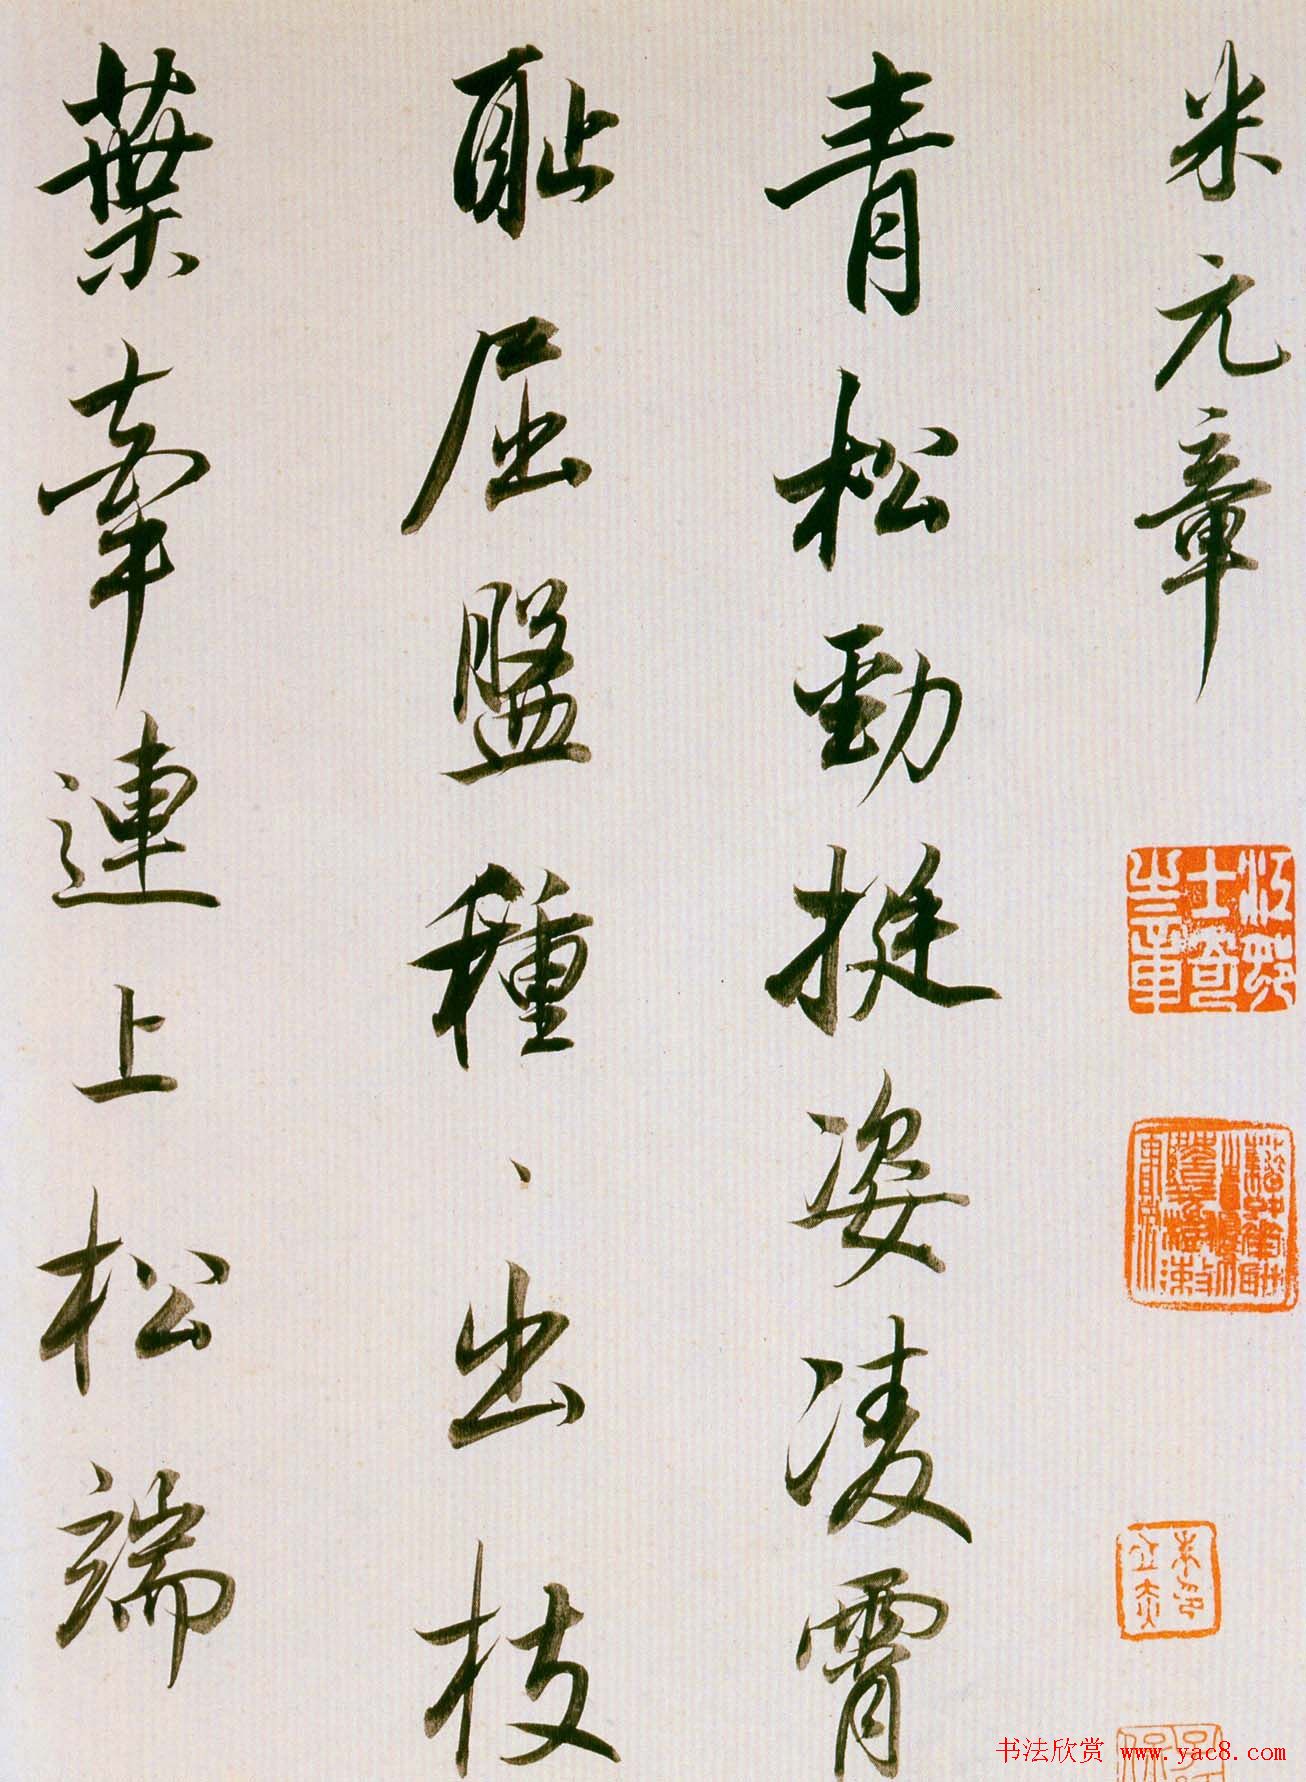 米元章
青松勁挺姿凌霄
恥屈盤種〻出枝
葉牽連上松端
江邨
士奇
之章
书法欣赏 www.yac8.com